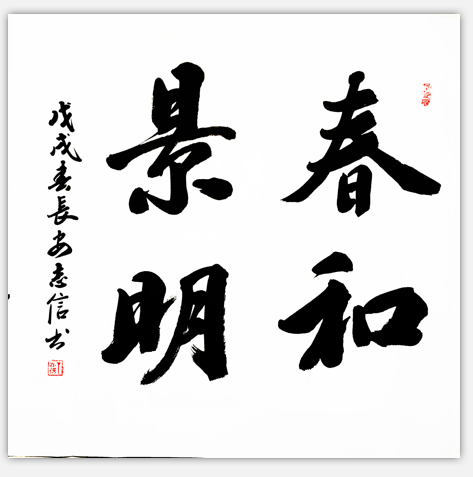 春和
景明
戊戌春長安志信书